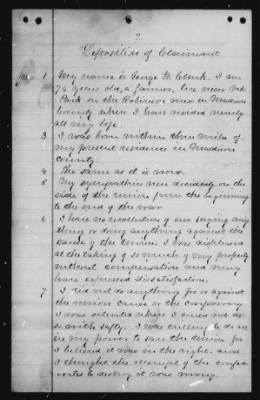 2
Deposition of Claimant
1 My name is George W. Clark. I am
74 years old, a farmer, live near
on the Robinson river in Madison
County where I have resided nearly
all my life.
3 I was born within three miles of
my present residence in Madison
County
4 The same as it is now.
5 My sympathies were decidedly on the
side of the Union from the beginning
to the end of the war
6 I have no recollection of ever saying any
thing or doing anything against the
cause of the Union. I was displeased
at the taking of so much of my property
without compensation and may
have expressed dissatisfaction.
7 I did not do anything for or against
the union cause or the confederacy
I was situated where I could not do
so with safety. I was willing to do all
in my power to save the union for
I believed it was in the right and
I thought the attempt of the confed
erates to destroy it was wrong.